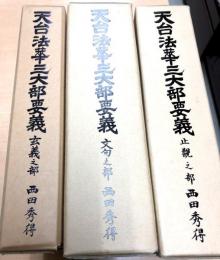 天台法華三大部要義
玄義之部 西田秀得
天台法華三大部要義
文句之部 西田秀得
天台法華三大部要義
止觀之部 西田秀得